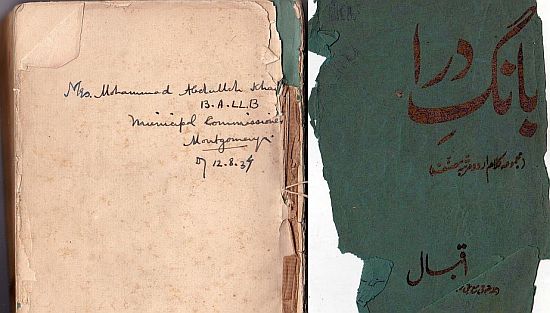 Mrs. Mohammad Abdullah Khan
B.A. LL.B
Municipal Commissioner
Montgomery
12.8.34
بانگِ درا
(مجموعہ کلام اردو مرتبہ مصنف)
اقبال